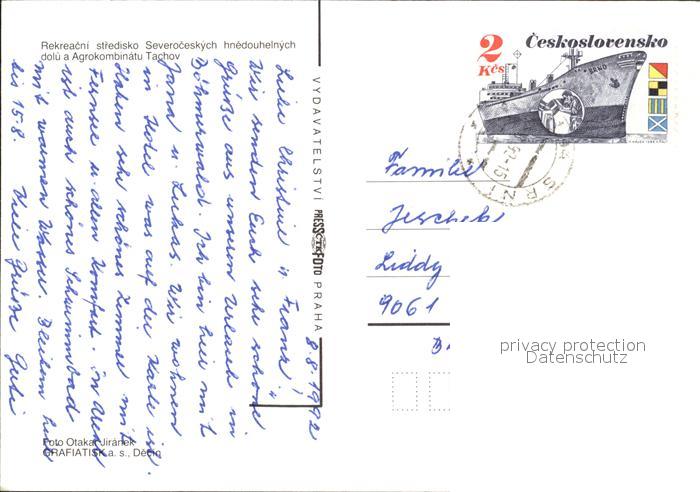 Rekreační středisko Severočeských hnědouhelných
dolů a Agrokombinátu Tachov
8.8.1992
Liebe Christine u. Frank,
Wir senden Euch sehr schöne
Grüße aus unserem Urlaub in
Böhmerwald. Ich bin hier mit
Jana u. Lukas. Wir wohnen
in Hotel was auf der Karte ist.
Haben sehr schönes Zimmer mit
Fernseh u. dem Komfort. in Areal
ist auch schönes Schwimmbad
mit warmen Wasser. Bleiben hier
bis 15.8. Viele Grüße
Foto Otakar Jiránek
GRAFIATISK a. s., Děčín
VYDAVATELSTVÍ PRESSFOTO PRAHA
2 Kčs
Československo
BRNO
SRNÍ
Familie
Jeschek
Liddy
9061
privacy protection
Datenschutz